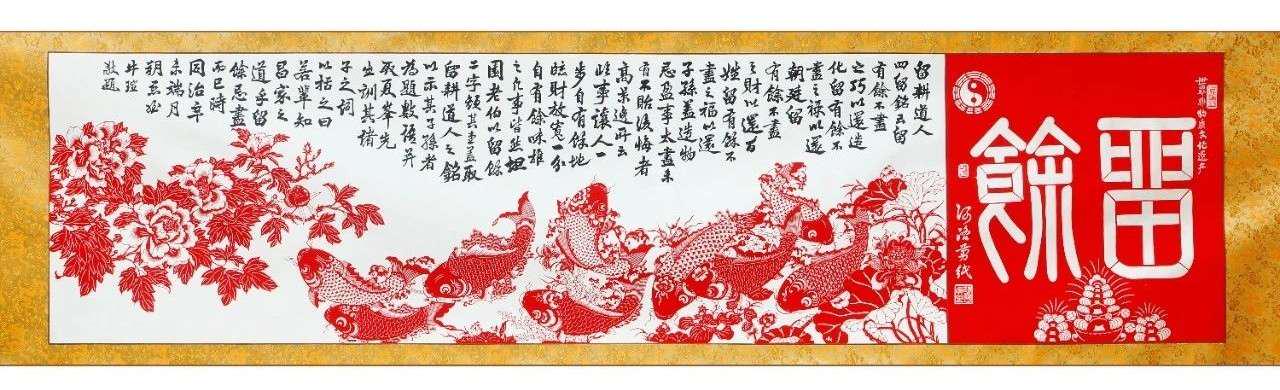 世界非物质文化遗产
留餘
河洛剪纸
留耕道人
四留銘云留
有餘不盡
之巧以還造
化留有餘不
盡之祿以還
朝廷留
有餘不盡
之財以還百
姓留有餘不
盡之福以還
子孫蓋造物
忌盈事太盡未
有不貽後悔者
高景逸所云
臨事讓人一
步自有餘地
臨財放寬一分
自有餘味推
之凡事皆然坦
園老伯以留餘
二字顏其堂蓋取
留耕道人之銘
以示其子孫者
為題數語并
取夏峯先
生訓其諸
子之詞
以括之曰
若輩知
昌家之
道乎留
餘忌盡
而已時
同治辛
未端月
朔愚姪
牛瑄
敬題